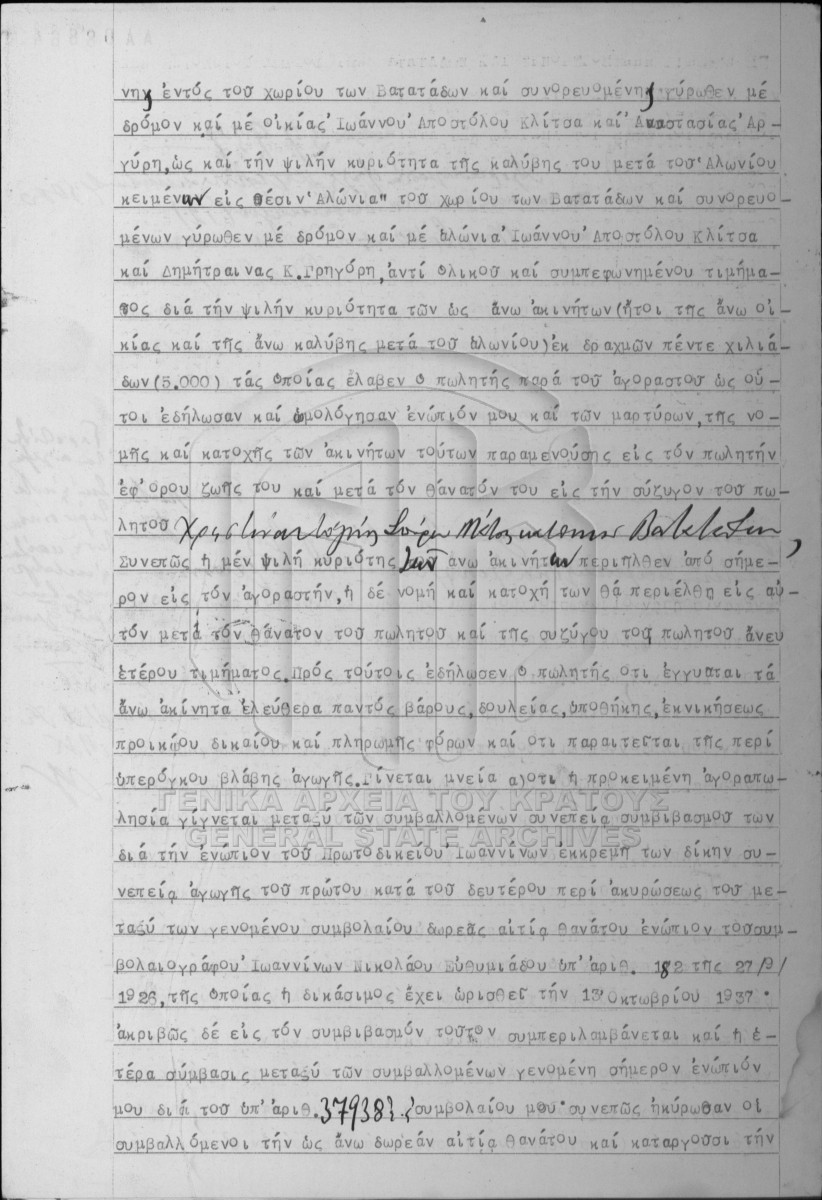 νης ἐντός τοῦ χωρίου των Βατατάδων καί συνορευομένης γύρωθεν μέ
δρόμον καί μέ οἰκίας Ἰωάννου Ἀποστόλου Κλίτσα καί Ἀναστασίας Ἀρ-
γύρη, ὡς καί τήν ψιλήν κυριότητα τῆς καλύβης του μετά τοῦ Ἀλωνίου
κειμένων εἰς θέσιν "Ἀλώνια" τοῦ χωρίου των Βατατάδων καί συνορευο-
μένων γύρωθεν μέ δρόμον καί μέ ἁλώνια Ἰωάννου Ἀποστόλου Κλίτσα
καί Δημήτραινας Κ. Γρηγόρη, ἀντί ὁλικοῦ καί συμπεφωνημένου τιμήμα-
τος διά τήν ψιλήν κυριότητα τῶν ὡς ἄνω ἀκινήτων (ἤτοι τῆς ἄνω οἰ-
κίας καί τῆς ἄνω καλύβης μετά τοῦ ἁλωνίου) ἐκ δραχμῶν πέντε χιλιά-
δων (5.000) τάς ὁποίας ἔλαβεν ὁ πωλητής παρά τοῦ ἀγοραστοῦ ὡς οὗ-
τοι ἐδήλωσαν καί ὡμολόγησαν ἐνώπιόν μου καί τῶν μαρτύρων, τῆς νο-
μῆς καί κατοχῆς τῶν ἀκινήτων τούτων παραμενούσης εἰς τόν πωλητήν
ἐφ' ὅρου ζωῆς του καί μετά τόν θάνατόν του εἰς τήν σύζυγον τοῦ πω-
λητοῦ
Συνεπῶς ἡ μέν ψιλή κυριότης τῶν ἄνω ἀκινήτων περιῆλθεν ἀπό σήμε-
ρον εἰς τόν ἀγοραστήν, ἡ δέ νομή καί κατοχή των θά περιέλθη εἰς αὐ-
τόν μετά τόν θάνατον τοῦ πωλητοῦ καί τῆς συζύγου τοῦ πωλητοῦ ἄνευ
ἑτέρου τιμήματος. Πρός τούτοις ἐδήλωσεν ὁ πωλητής ὅτι ἐγγυᾶται τά
ἄνω ἀκίνητα ἐλεύθερα παντός βάρους, δουλείας, ὑποθήκης, ἐκνικήσεως
προικῴου δικαίου καί πληρωμῆς φόρων καί ὅτι παραιτεῖται τῆς περί
ὑπερόγκου βλάβης ἀγωγῆς. Γίνεται μνεία α) ὅτι ἡ προκειμένη ἀγοραπω-
λησία γίγνεται μεταξύ τῶν συμβαλλομένων συνεπείᾳ συμβιβασμοῦ των
διά τήν ἐνώπιον τοῦ Πρωτοδικείου Ἰωαννίνων ἐκκρεμῆ των δίκην συ-
νεπείᾳ ἀγωγῆς τοῦ πρώτου κατά τοῦ δευτέρου περί ἀκυρώσεως τοῦ με-
ταξύ των γενομένου συμβολαίου δωρεᾶς αἰτίᾳ θανάτου ἐνώπιον τοῦ συμ-
βολαιογράφου Ἰωαννίνων Νικολάου Εὐθυμιάδου ὑπ' ἀριθ. 182 τῆς 27/9/
1926, τῆς ὁποίας ἡ δικάσιμος ἔχει ὡρισθεῖ τήν 13 Ὀκτωβρίου 1937·
ἀκριβῶς δέ εἰς τόν συμβιβασμόν τοῦτον συμπεριλαμβάνεται καί ἡ ἑ-
τέρα σύμβασις μεταξύ τῶν συμβαλλομένων γενομένη σήμερον ἐνώπιόν
μου διά τοῦ ὑπ' ἀριθ. 37938 συμβολαίου μου· συνεπῶς ἠκύρωσαν οἱ
συμβαλλόμενοι τήν ὡς ἄνω δωρεάν αἰτίᾳ θανάτου καί καταργοῦσι τήν
ΓΕΝΙΚΑ ΑΡΧΕΙΑ ΤΟΥ ΚΡΑΤΟΥΣ
GENERAL STATE ARCHIVES